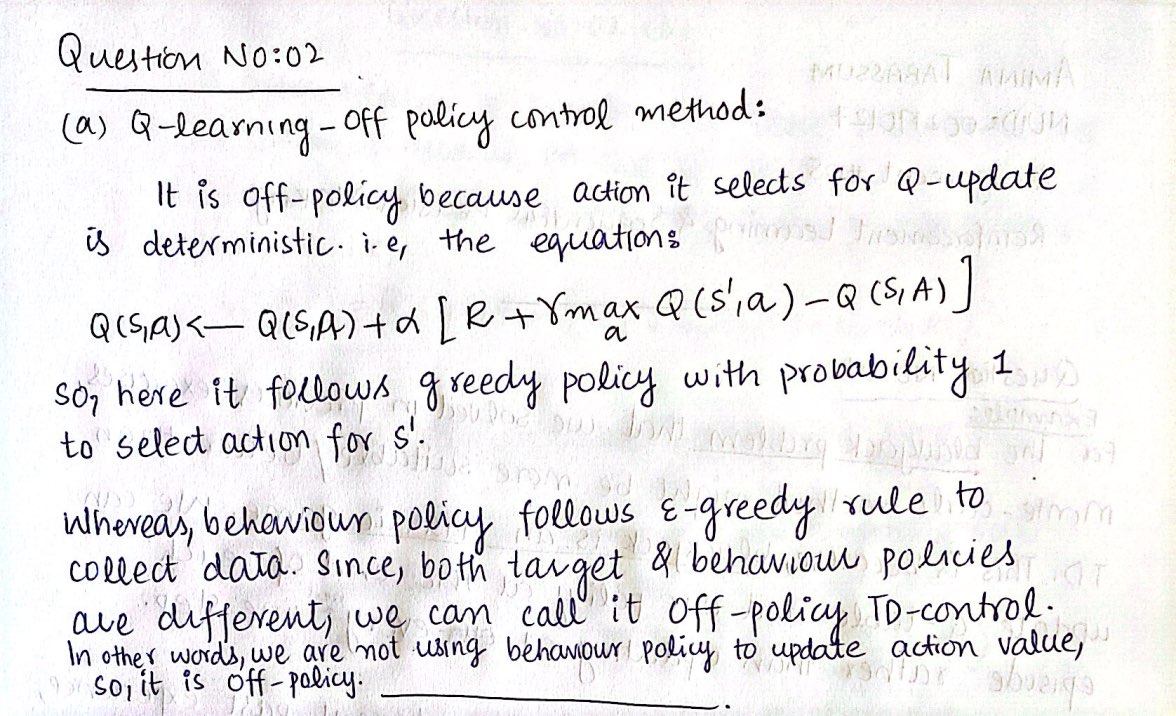 Question No:02
(a) Q-learning - Off policy control method:
It is Off-policy because action it selects for Q-update
is deterministic. i.e, the equation:
Q(S,a) <— Q(S,A) + α [ R + γ max Q(s',a) - Q(S,A) ]
a
so, here it follows greedy policy with probability 1
to select action for s'.
Whereas, behaviour policy follows ε-greedy rule to
collect data. Since, both target & behaviour policies
are different, we can call it Off-policy TD-control.
In other words, we are not using behaviour policy to update action value,
so, it is Off-policy.